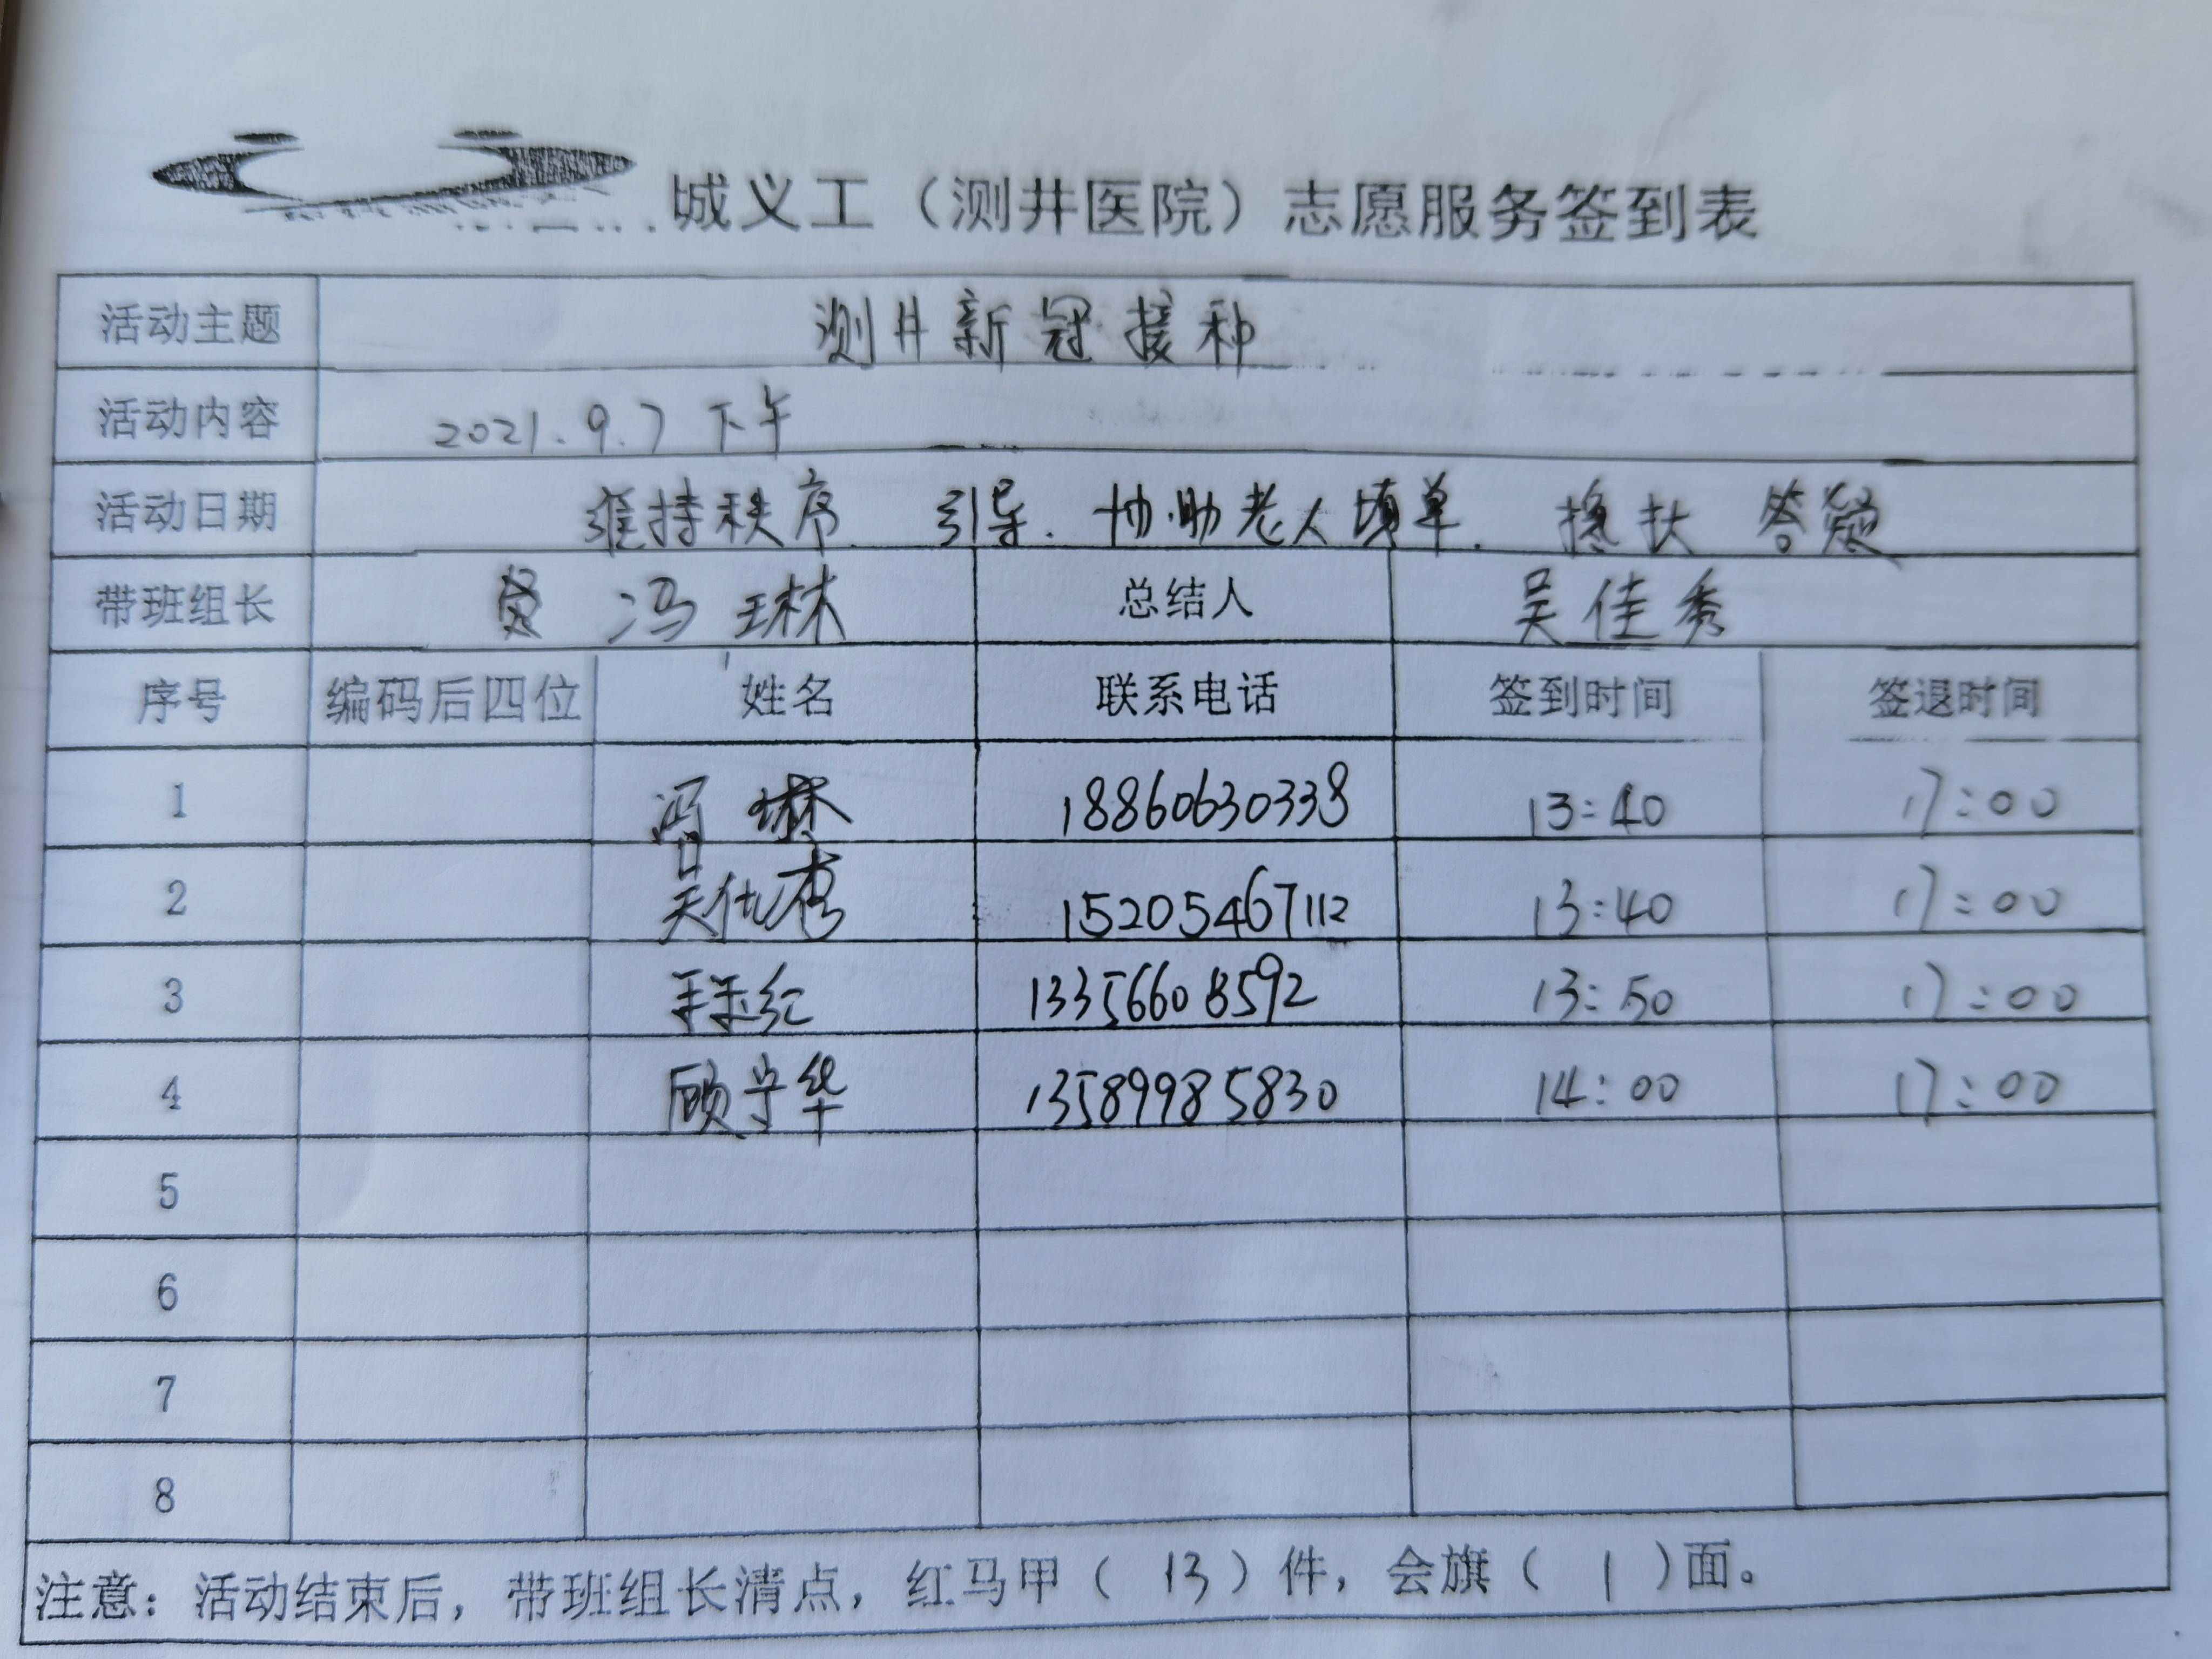 城义工（测井医院）志愿服务签到表
活动主题 测井新冠接种
活动内容 2021.9.7 下午
活动日期 维持秩序 引导. 协助老人填单. 搀扶 答疑
带班组长 冯琳 总结人 吴佳秀
序号 编码后四位 姓名 联系电话 签到时间 签退时间
1 冯琳 18860630338 13:40 17:00
2 吴佳秀 15205467112 13:40 17:00
3 13356608592 13:50 17:00
4 顾宁华 13589985830 14:00 17:00
5
6
7
8
注意：活动结束后，带班组长清点，红马甲（13）件，会旗（1）面。